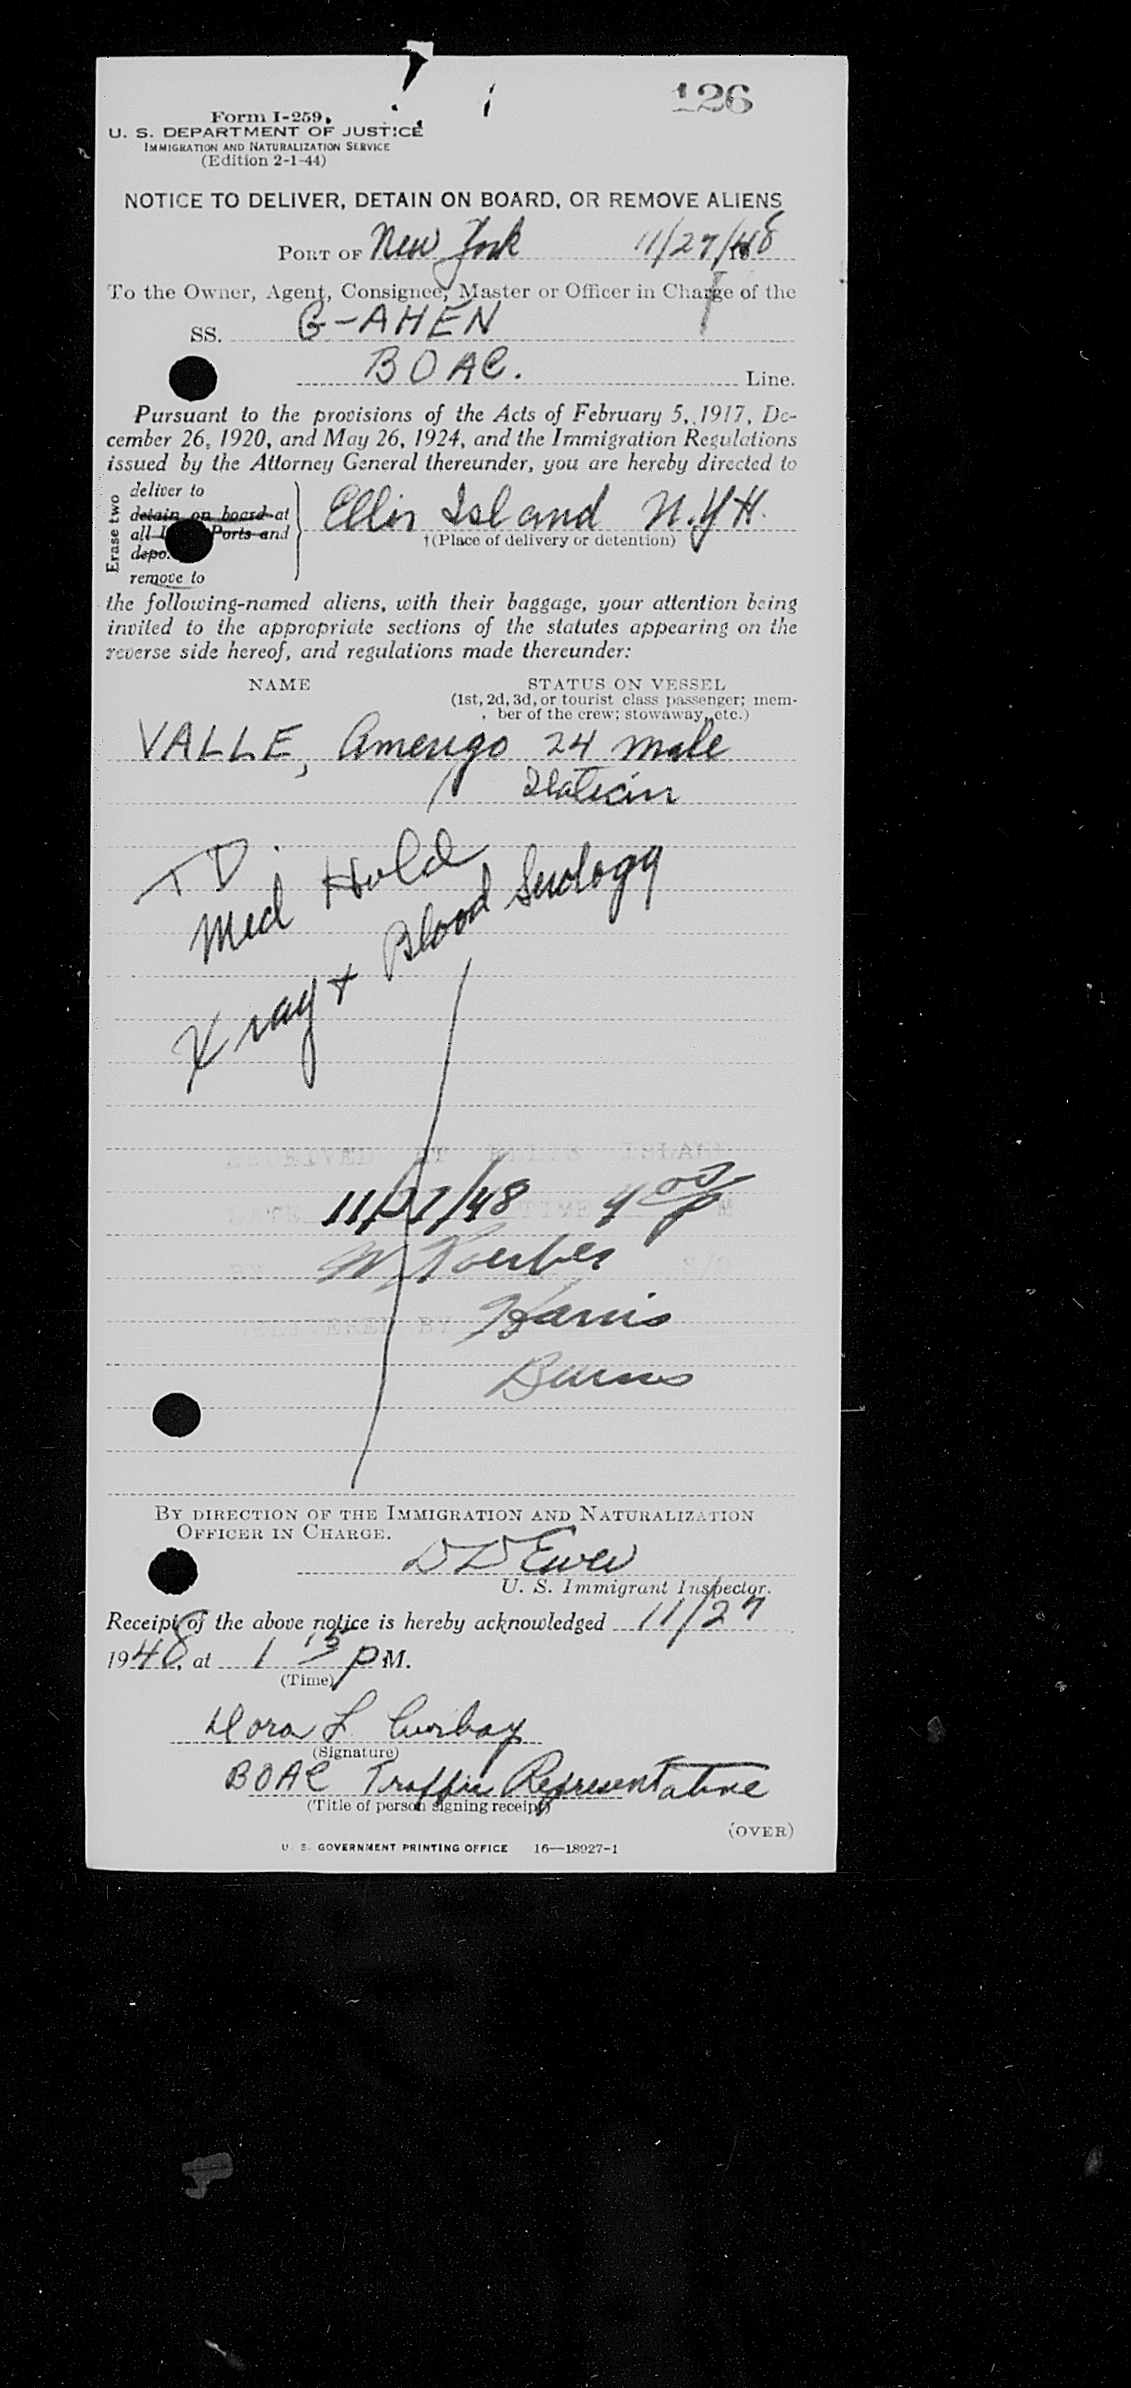 126
Form I-259
U. S. DEPARTMENT OF JUSTICE
IMMIGRATION AND NATURALIZATION SERVICE
(Edition 2-1-44)
NOTICE TO DELIVER, DETAIN ON BOARD, OR REMOVE ALIENS
PORT OF New York 11/27/48
To the Owner, Agent, Consignee, Master or Officer in Charge of the
SS. G-AHEN
BOAC. Line.
Pursuant to the provisions of the Acts of February 5, 1917, De-
cember 26, 1920, and May 26, 1924, and the Immigration Regulations
issued by the Attorney General thereunder, you are hereby directed to
Erase two
deliver to
detain on board at
all Ports and
remove to
Ellis Island N.Y.H.
†(Place of delivery or detention)
the following-named aliens, with their baggage, your attention being
invited to the appropriate sections of the statutes appearing on the
reverse side hereof, and regulations made thereunder:
NAME STATUS ON VESSEL
(1st, 2d, 3d, or tourist class passenger; mem-
ber of the crew; stowaway, etc.)
VALLE, Amerigo 24 male
Italian
TD.
Med Hold
X ray + Blood Serology
11/27/48 4 00 P
Harris
Burns
BY DIRECTION OF THE IMMIGRATION AND NATURALIZATION
OFFICER IN CHARGE.
U. S. Immigrant Inspector.
Receipt of the above notice is hereby acknowledged 11/27
1948, at 1 15 P M.
(Time)
(Signature)
BOAC Traffic Representative
(Title of person signing receipt)
(OVER)
U. S. GOVERNMENT PRINTING OFFICE 16—18927-1